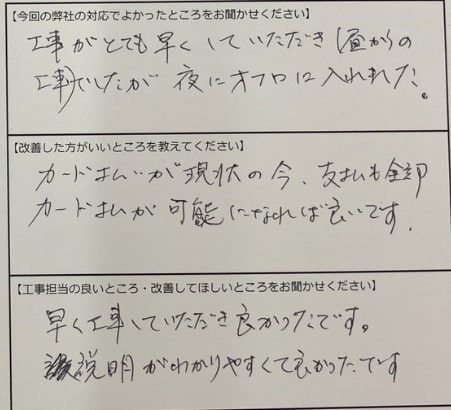 【今回の弊社の対応でよかったところをお聞かせください】
工事がとても早くしていただき昼からの
工事でしたが 夜にオフロに入れました。
【改善した方がいいところを教えてください】
カードまらいが現状の今、支払も全部
カードまらいが可能になれば良いです.
【工事担当の良いところ・改善してほしいところをお聞かせください】
早く工事していただき良かったです。
説明がわかりやすくて良かったです